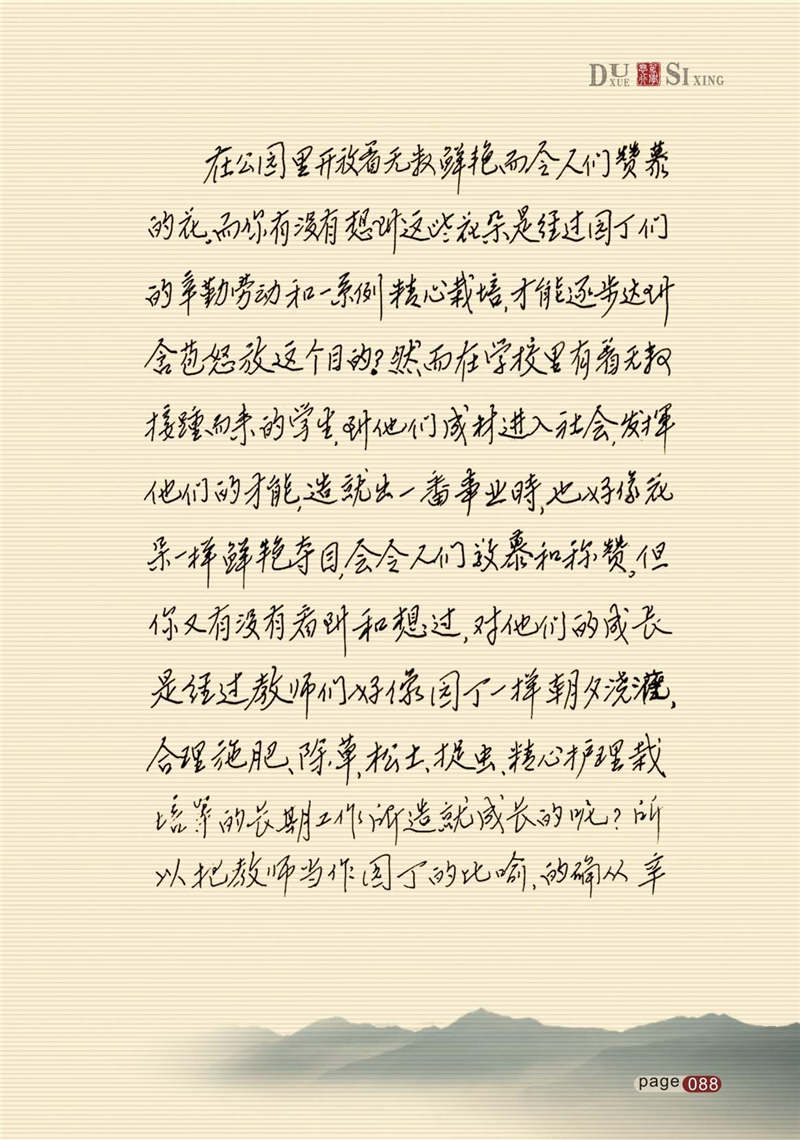 DU XUE SI XING
在公园里开放着无数鲜艳而令人们赞慕
的花。而你有没有想到这些花朵是经过园丁们
的辛勤劳动和一系例精心栽培,才能逐步达到
含苞怒放这个目的?然而在学校里有着无数
接踵而来的学生,到他们成材进入社会,发挥
他们的才能,造就出一番事业時,也好像花
朵一样鲜艳夺目,会令人们敬慕和称赞。但
你又有没有看到和想过,对他们的成长
是经过教师们好像园丁一样朝夕浇灌,
合理施肥、除草、松土、捉虫、精心护理栽
培等的长期工作所造就成长的呢?所
以把教师当作园丁的比喻,的确从辛
page 088